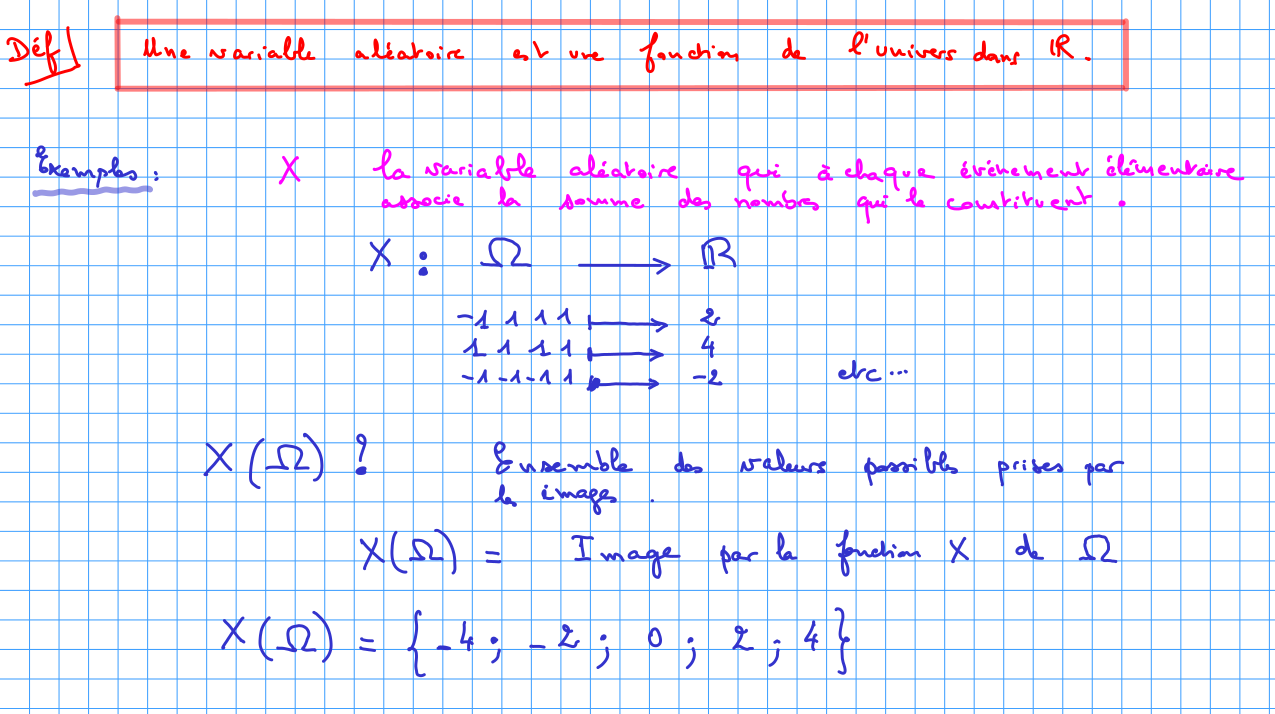 Déf Une variable aléatoire est une fonction de l'univers dans ℝ.
Exemples : X la variable aléatoire qui à chaque événement élémentaire
associe la somme des nombres qui le constituent.
X : Ω ⟶ ℝ
-1 1 1 1 ⟼ 2
1 1 1 1 ⟼ 4
-1 -1 -1 1 ⟼ -2 etc...
X(Ω) ? Ensemble des valeurs possibles prises par
les images.
X(Ω) = Image par la fonction X de Ω
X(Ω) = {-4 ; -2 ; 0 ; 2 ; 4}